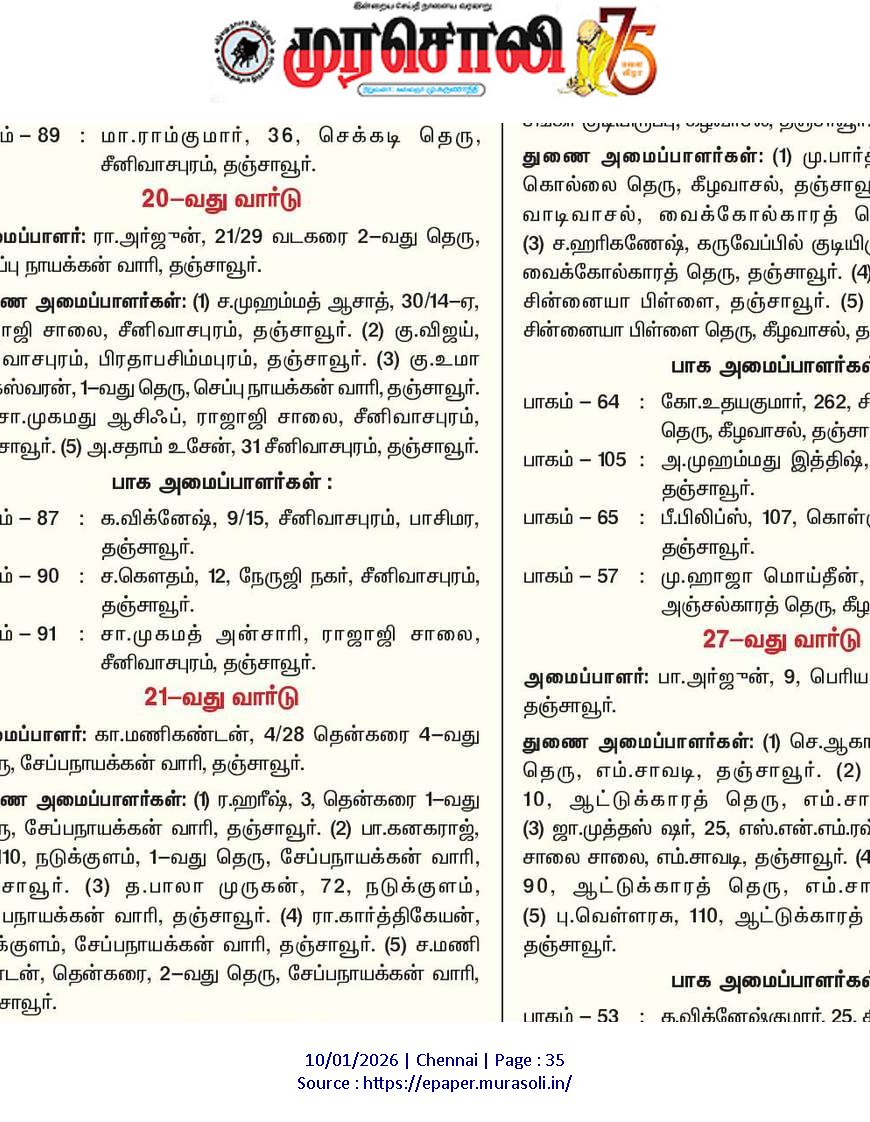 இன்றைய செய்தி நாளைய வரலாறு
முரசொலி
75
பவள விழா
நிறுவனர் : கலைஞர் மு.கருணாநிதி
ம் – 89 : மா.ராம்குமார், 36, செக்கடி தெரு,
சீனிவாசபுரம், தஞ்சாவூர்.
20–வது வார்டு
மைப்பாளர்: ரா.அர்ஜுன், 21/29 வடகரை 2–வது தெரு,
ப்பு நாயக்கன் வாரி, தஞ்சாவூர்.
ணை அமைப்பாளர்கள்: (1) ச.முஹம்மத் ஆசாத், 30/14–ஏ,
ாஜி சாலை, சீனிவாசபுரம், தஞ்சாவூர். (2) கு.விஜய்,
வாசபுரம், பிரதாபசிம்மபுரம், தஞ்சாவூர். (3) கு.உமா
கஸ்வரன், 1–வது தெரு, செப்பு நாயக்கன் வாரி, தஞ்சாவூர்.
சா.முகமது ஆசிஃப், ராஜாஜி சாலை, சீனிவாசபுரம்,
சாவூர். (5) அ.சதாம் உசேன், 31 சீனிவாசபுரம், தஞ்சாவூர்.
பாக அமைப்பாளர்கள் :
ம் – 87 : க.விக்னேஷ், 9/15, சீனிவாசபுரம், பாசிமர,
தஞ்சாவூர்.
ம் – 90 : ச.கௌதம், 12, நேருஜி நகர், சீனிவாசபுரம்,
தஞ்சாவூர்.
ம் – 91 : சா.முகமத் அன்சாரி, ராஜாஜி சாலை,
சீனிவாசபுரம், தஞ்சாவூர்.
21–வது வார்டு
மைப்பாளர்: கா.மணிகண்டன், 4/28 தென்கரை 4–வது
ரு, சேப்பநாயக்கன் வாரி, தஞ்சாவூர்.
ணை அமைப்பாளர்கள்: (1) ர.ஹரீஷ், 3, தென்கரை 1–வது
ரு, சேப்பநாயக்கன் வாரி, தஞ்சாவூர். (2) பா.கனகராஜ்,
110, நடுக்குளம், 1–வது தெரு, சேப்பநாயக்கன் வாரி,
சாவூர். (3) த.பாலா முருகன், 72, நடுக்குளம்,
பநாயக்கன் வாரி, தஞ்சாவூர். (4) ரா.கார்த்திகேயன்,
க்குளம், சேப்பநாயக்கன் வாரி, தஞ்சாவூர். (5) ச.மணி
டன், தென்கரை, 2–வது தெரு, சேப்பநாயக்கன் வாரி,
சாவூர்.
குடியிருப்பு, கீழவாசல், தஞ்சாவூர்.
துணை அமைப்பாளர்கள்: (1) மு.பார்த்
கொல்லை தெரு, கீழவாசல், தஞ்சாவூ
வாடிவாசல், வைக்கோல்காரத் தெ
(3) ச.ஹரிகணேஷ், கருவேப்பில் குடியிரு
வைக்கோல்காரத் தெரு, தஞ்சாவூர். (4)
சின்னையா பிள்ளை, தஞ்சாவூர். (5)
சின்னையா பிள்ளை தெரு, கீழவாசல், த
பாக அமைப்பாளர்கள்
பாகம் – 64 : கோ.உதயகுமார், 262, சி
தெரு, கீழவாசல், தஞ்சா
பாகம் – 105 : அ.முஹம்மது இத்திஷ்,
தஞ்சாவூர்.
பாகம் – 65 : பீ.பிலிப்ஸ், 107, கொள்
தஞ்சாவூர்.
பாகம் – 57 : மு.ஹாஜா மொய்தீன்,
அஞ்சல்காரத் தெரு, கீழ
27–வது வார்டு
அமைப்பாளர்: பா.அர்ஜுன், 9, பெரிய
தஞ்சாவூர்.
துணை அமைப்பாளர்கள்: (1) செ.ஆகா
தெரு, எம்.சாவடி, தஞ்சாவூர். (2)
10, ஆட்டுக்காரத் தெரு, எம்.சா
(3) ஜா.முத்தஸ் ஷர், 25, எஸ்.என்.எம்.ரஹ்
சாலை சாலை, எம்.சாவடி, தஞ்சாவூர். (4
90, ஆட்டுக்காரத் தெரு, எம்.சா
(5) பு.வெள்ளரசு, 110, ஆட்டுக்காரத்
தஞ்சாவூர்.
பாக அமைப்பாளர்கள்
பாகம் – 53 : க.விக்னேஷ்குமார், 25,
10/01/2026 | Chennai | Page : 35
Source : https://epaper.murasoli.in/